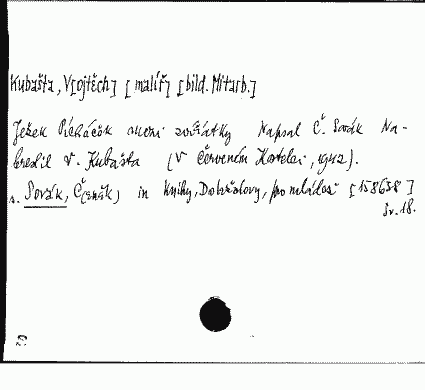 Kubašta, V[ojtěch] [malíř] [bild. Mitarb.]
Ježek Pícháček mezi zvířátky Napsal Č. Sovák Na-
kreslil V. Kubašta (V Červeném Kostelci, 1942).
s. Sovák, Č[eněk] in Knihy, Dobršovy, pro mládež [158658]
Sv. 18.